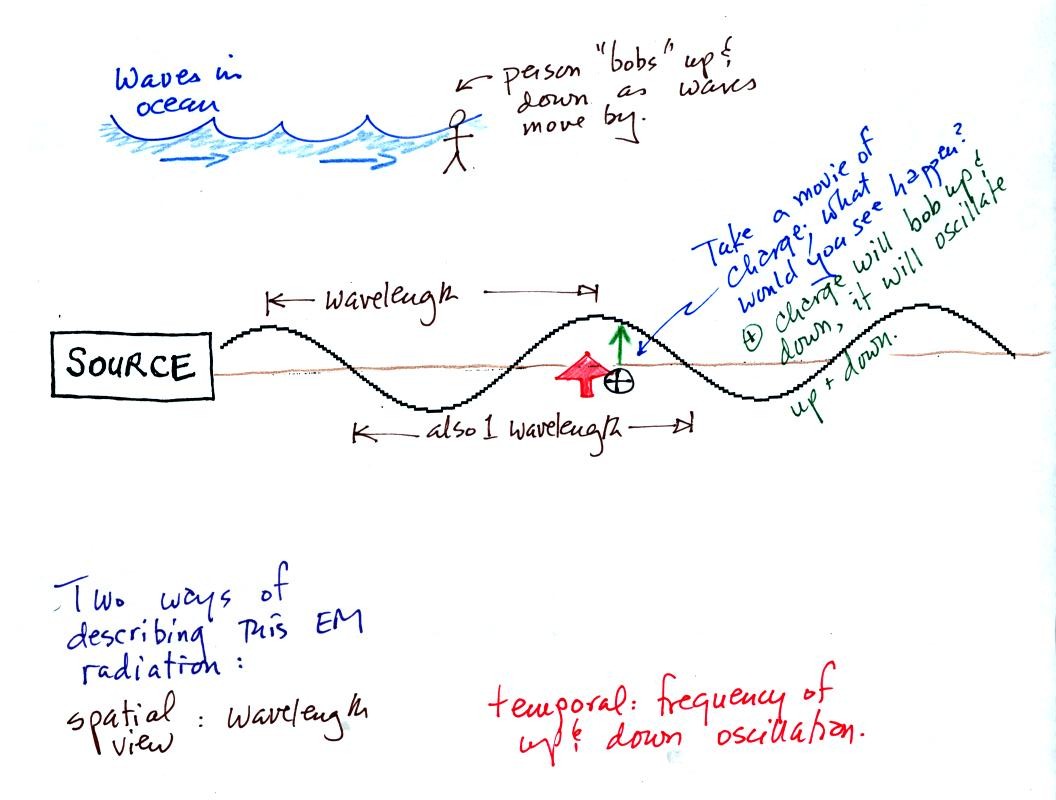 Waves in
ocean
person "bobs" up &
down as waves
move by.
Take a movie of
charge, what
would you see happen?
⊕ charge will bob up &
down, it will oscillate
up + down.
wavelength
SOURCE
+
also 1 wavelength
Two ways of
describing this EM
radiation:
spatial : wavelength
view
temporal: frequency of
up & down oscillation.